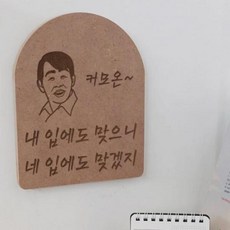 커모온~
내 입에도 맞으니
네 입에도 맞겠지